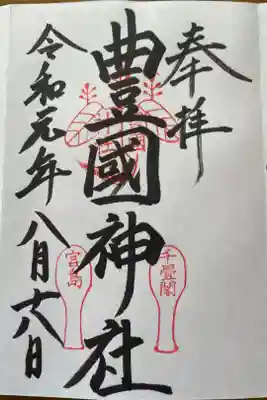 奉拝
豊國神社
千畳閣
宮島
令和元年八月十八日